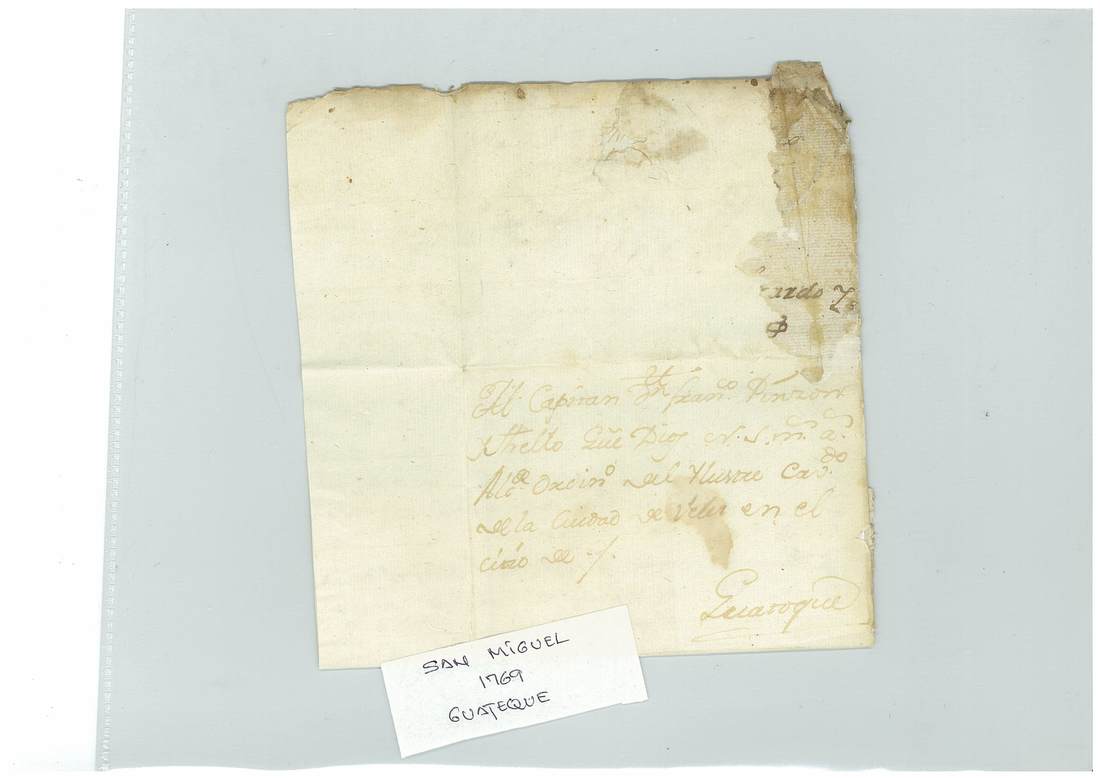 ardo
Al Capitan Dn franco. Pinzon
Que Dios N. S. m. a.
Alcde. Ordino del Ylustre Cavdo.
de la Ciudad de Velez en el
citio de
Guatoque
SAN MIGUEL
1769
GUATEQUE